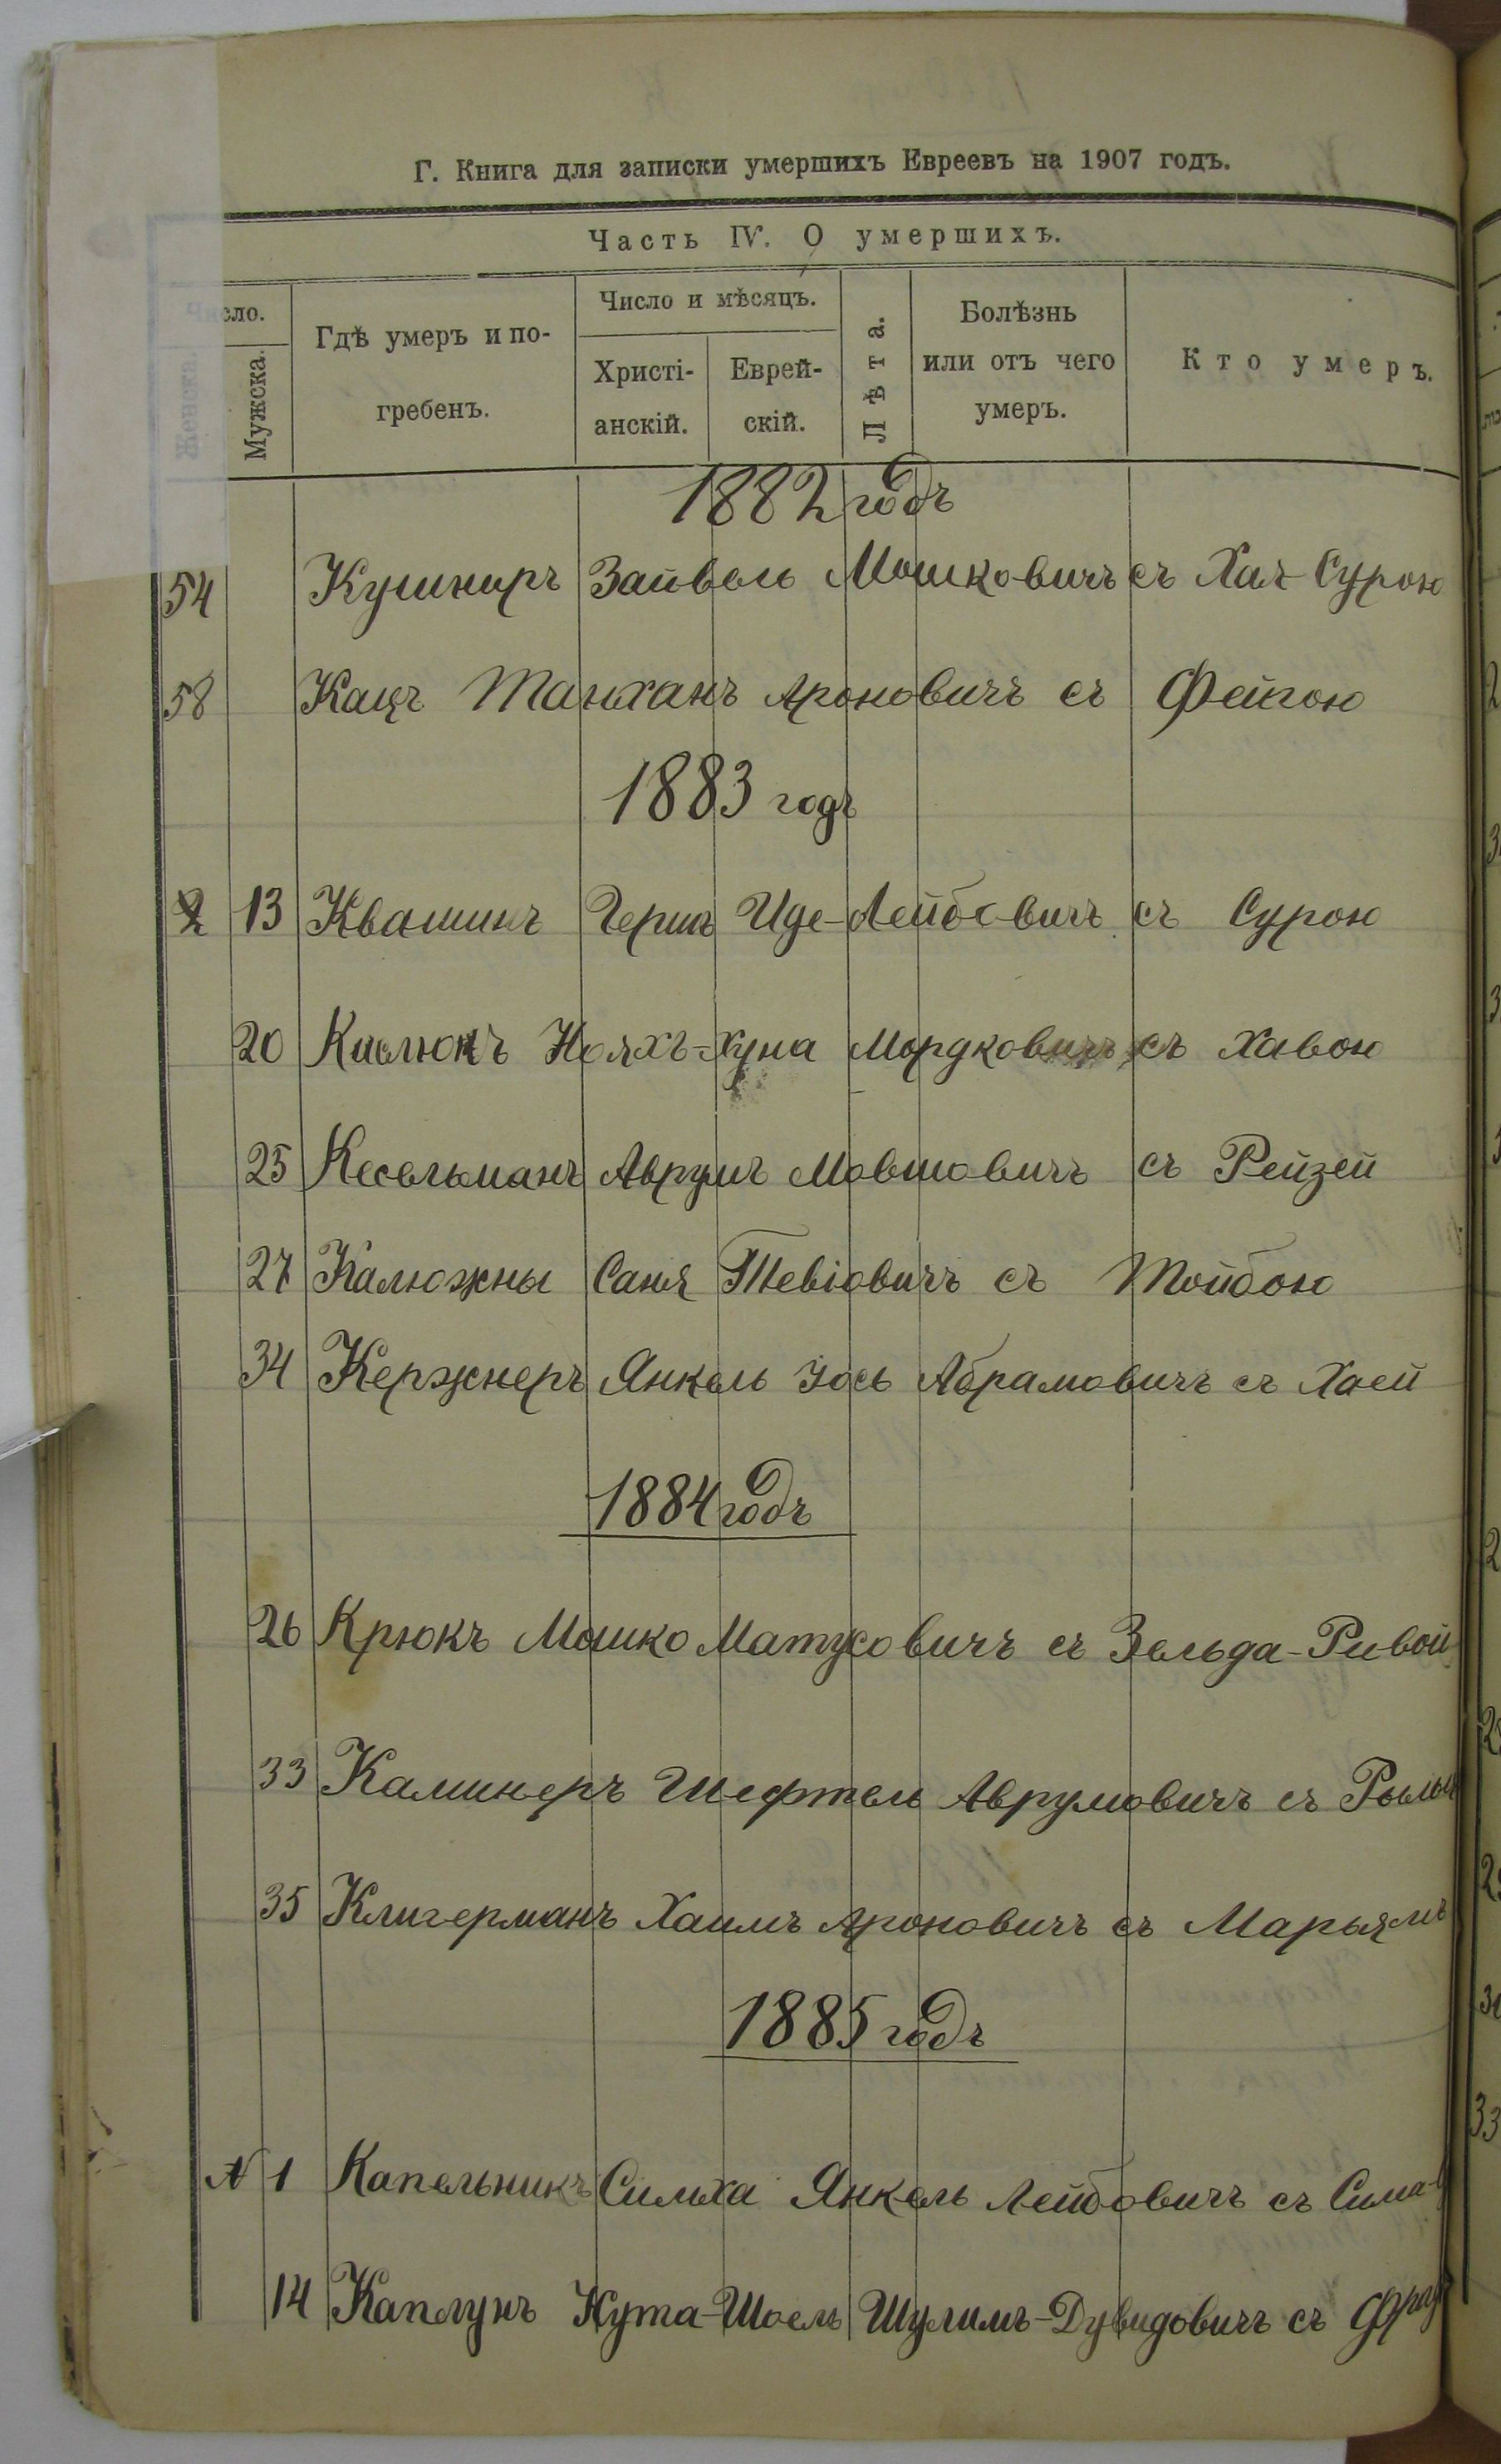 Г. Книга для записки умершихъ Евреевъ на 1907 годъ.
Часть IV. О умершихъ.
Число.
Женска.
Мужска.
Гдѣ умеръ и по-
гребенъ.
Число и мѣсяцъ.
Христі-
анскій.
Еврей-
скій.
Лѣта.
Болѣзнь
или отъ чего
умеръ.
Кто умеръ.
1882 годъ
54 Кушниръ Зайвель Мошковичъ съ Хая-Сурою
58 Кацъ Танханъ Ароновичъ съ Фейгою
1883 годъ
13 Квашинъ Гершъ Иде-Лейбовичъ съ Сурою
20 Кислюкъ Нояхъ-Хуна Мордковичъ съ Хавою
25 Кесельманъ Аврумъ Мовшовичъ съ Рейзей
27 Калюжны Саня Тевіовичъ съ Тойбою
34 Кержнеръ Янкель Іось Абрамовичъ съ Хаей
1884 годъ
26 Крюкъ Мошко Матусовичъ съ Зельда-Ривой
33 Калинеръ Шефтель Аврумовичъ съ
35 Клигерманъ Хаимъ Ароновичъ съ Марьямъ
1885 годъ
N 1 Капельникъ Симха Янкель Лейбовичъ съ Сима-
14 Каплунъ Нута-Шоель Шулимъ-Дувидовичъ съ